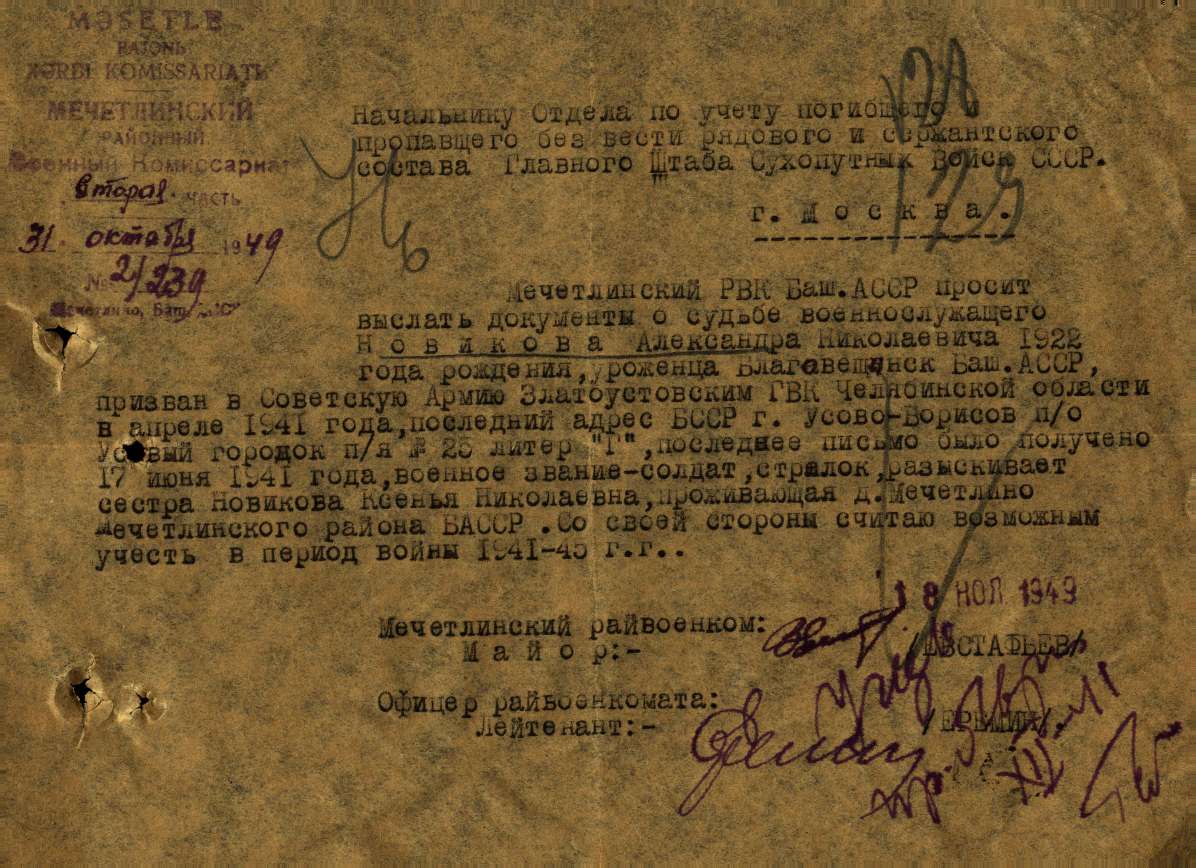 MƏSETLE
RAJONЬ
XƏRBI KOMISSARIATЬ
МЕЧЕТЛИНСКИЙ
РАЙОННЫЙ
Военный Комиссариат
вторая. ЧАСТЬ
31. октября 1949
№ 2/239
Начальнику Отдела по учету погибшего и
пропавшего без вести рядового и сержантского
состава Главного Штаба Сухопутных Войск СССР.
г. М о с к в а .
Мечетлинский РВК Баш.АССР просит
выслать документы о судьбе военнослужащего
Н о в и к о в а Александра Николаевича 1922
года рождения,уроженца Благовещенск Баш.АССР,
призван в Советскую Армию Златоустовским ГВК Челябинской области
в апреле 1941 года,последний адрес БССР г. Усово-Борисов п/о
Усовый городок п/я № 25 литер "Г",последнее письмо было получено
17 июня 1941 года,военное звание-солдат,стрялок,разыскивает
сестра Новикова Ксенья Николаевна,проживающая д.Мечетлино
Мечетлинского района БАССР .Со своей стороны считаю возможным
учесть в период войны 1941-45 г.г..
18 НОЯ 1949
Мечетлинский райвоенком:
М а й о р:- /ЕВСТАФЬЕВ/
Офицер райвоенкомата:
Лейтенант:- /ЕРЕМИН/.